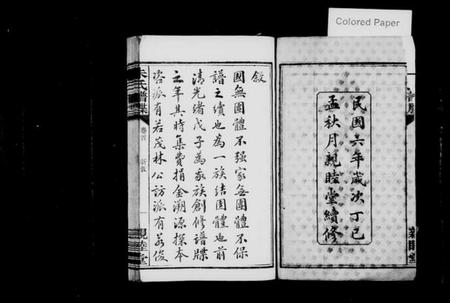 Colored Paper
民國六年歲次丁巳
孟秋月親睦堂續修
敘
國無團體不强家無團體不保
譜之續也為一族結團體也前
清光緒戊子為家族創修譜牒
之年其時集費捐金溯源探本
咨派有若茂林公訪派有若俊
朱氏譜牒
卷首
新敘
親睦堂